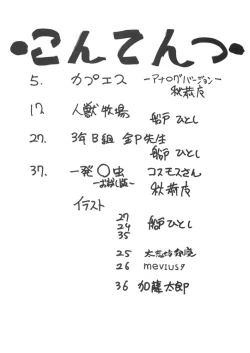 ・こんてんつ・
5. カプエス －アナログバージョン－
秋蕎庵
17. 人獣牧場
船戸ひとし
27. 3年B組 金P先生
船戸ひとし
37. 一発〇虫 コスモスさん
－お試し版－ 秋蕎庵
イラスト
27
29 船戸ひとし
35
25
26 mevius9
36 加藤太郎